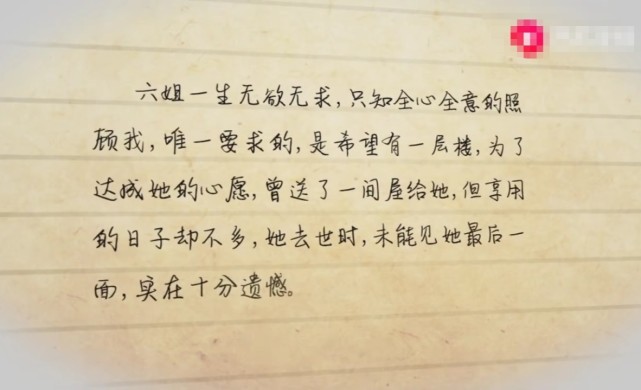 六姐一生无欲无求，只知全心全意的照
顾我，唯一要求的，是希望有一层楼，为了
达成她的心愿，曾送了一间屋给她，但享用
的日子却不多，她去世时，未能见她最后一
面，实在十分遗憾。